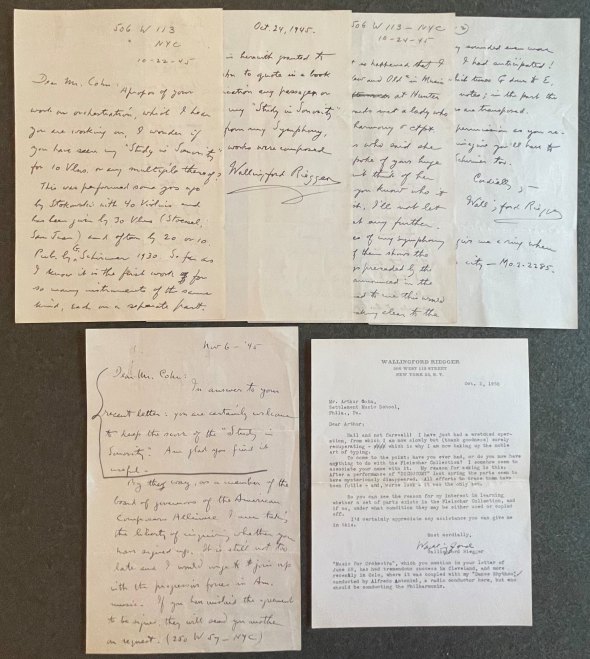 506 W 113
NYC
10-22-45
Dear Mr. Cohn: Apropos of your
work on orchestration, which I hear
you are working on, I wonder if
you have seen my "Study in Sonority"
for 10 Vlns. or any multiple thereof?
This was performed some yrs ago
by Stokowski with 40 Violins and
has been given by 30 Vlns (Stoessel,
San Juan) and often by 20 or 10.
Publ. by G. Schirmer 1930. So far as
I know it is the first work for
so many instruments of the same
kind, each on a separate part.
Oct. 24, 1945.
is herewith granted to
to quote in a book
any passages or
my "Study in Sonority"
from my Symphony,
works were composed
Wallingford Riegger
506 W 113 - NYC
10-24-45
so happened that I
and Old" in Music
at Hunter
met a lady who
harmony & ctpt
who said she
spoke of your huge
think of her
you know who
I'll not let
it any further.
of my symphony
of them shows the
preceded by the
announced in the
to me this would
making clear to the
sounded even more
I had anticipated!
which times G dur & E.
notes; in the part this
are transposed.
permission as you re-
you'll have to
Schirmer too.
Cordially,
Wallingford Riegger
give me a ring when
city - Mo. 2-2285.
Nov 6 - '45
Dear Mr. Cohn:
In answer to your
recent letter: you are certainly welcome
to keep the score of the "Study in
Sonority". Am glad you find it
useful.
By the way, as a member of the
board of governors of the American
Composers Alliance I am taking
the liberty of inquiring whether you
have signed up. It is still not too
late and I would urge you to join up
with the progressive forces in Am.
music. If you have mislaid the agreement
to be signed, they will send you another
on request. (250 W 57 - NYC)
WALLINGFORD RIEGGER
506 WEST 113 STREET
NEW YORK 25, N. Y.
Oct. 2, 1950
Mr. Arthur Cohn,
Settlement Music School,
Phila., Pa.
Dear Arthur:
Hail and not farewell! I have just had a wretched oper-
ation, from which I am now slowly but (thank goodness) surely
recuperating - which is why I am now taking up the noble
art of typing.
To come to the point: have you ever had, or do you now have
anything to do with the Fleisher Collection? I somehow seem to
associate your name with it. My reason for asking is this:
After a performance of last spring the parts seem to
have mysteriously disappeared. All efforts to trace them have
been futile - and, worse luck - it was the only set.
So you can see the reason for my interest in learning
whether a set of parts exists in the Fleisher Collection, and
if so, under what condition they may be either used or copied
off.
I'd certainly appreciate any assistance you can give me
in this.
Most cordially,
Wallingford
Wallingford Riegger
"Music for Orchestra", which you mention in your letter of
June 28, has had tremendous success in Cleveland, and more
recently in Oslo, where it was coupled with my "Dance Rhythms",
conducted by Alfredo Antonini, a radio conductor here, but who
should be conducting the Philharmonic.